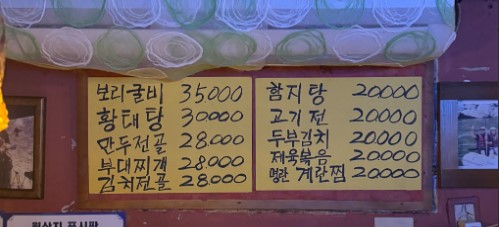 보리굴비 35000
황태탕 30000
만두전골 28.000
부대찌개 28.000
김치전골 28000
함지탕 20000
고기전 20000
두부김치 20.000
제육볶음 20000
명란 계란찜 20000
원산지 표시판